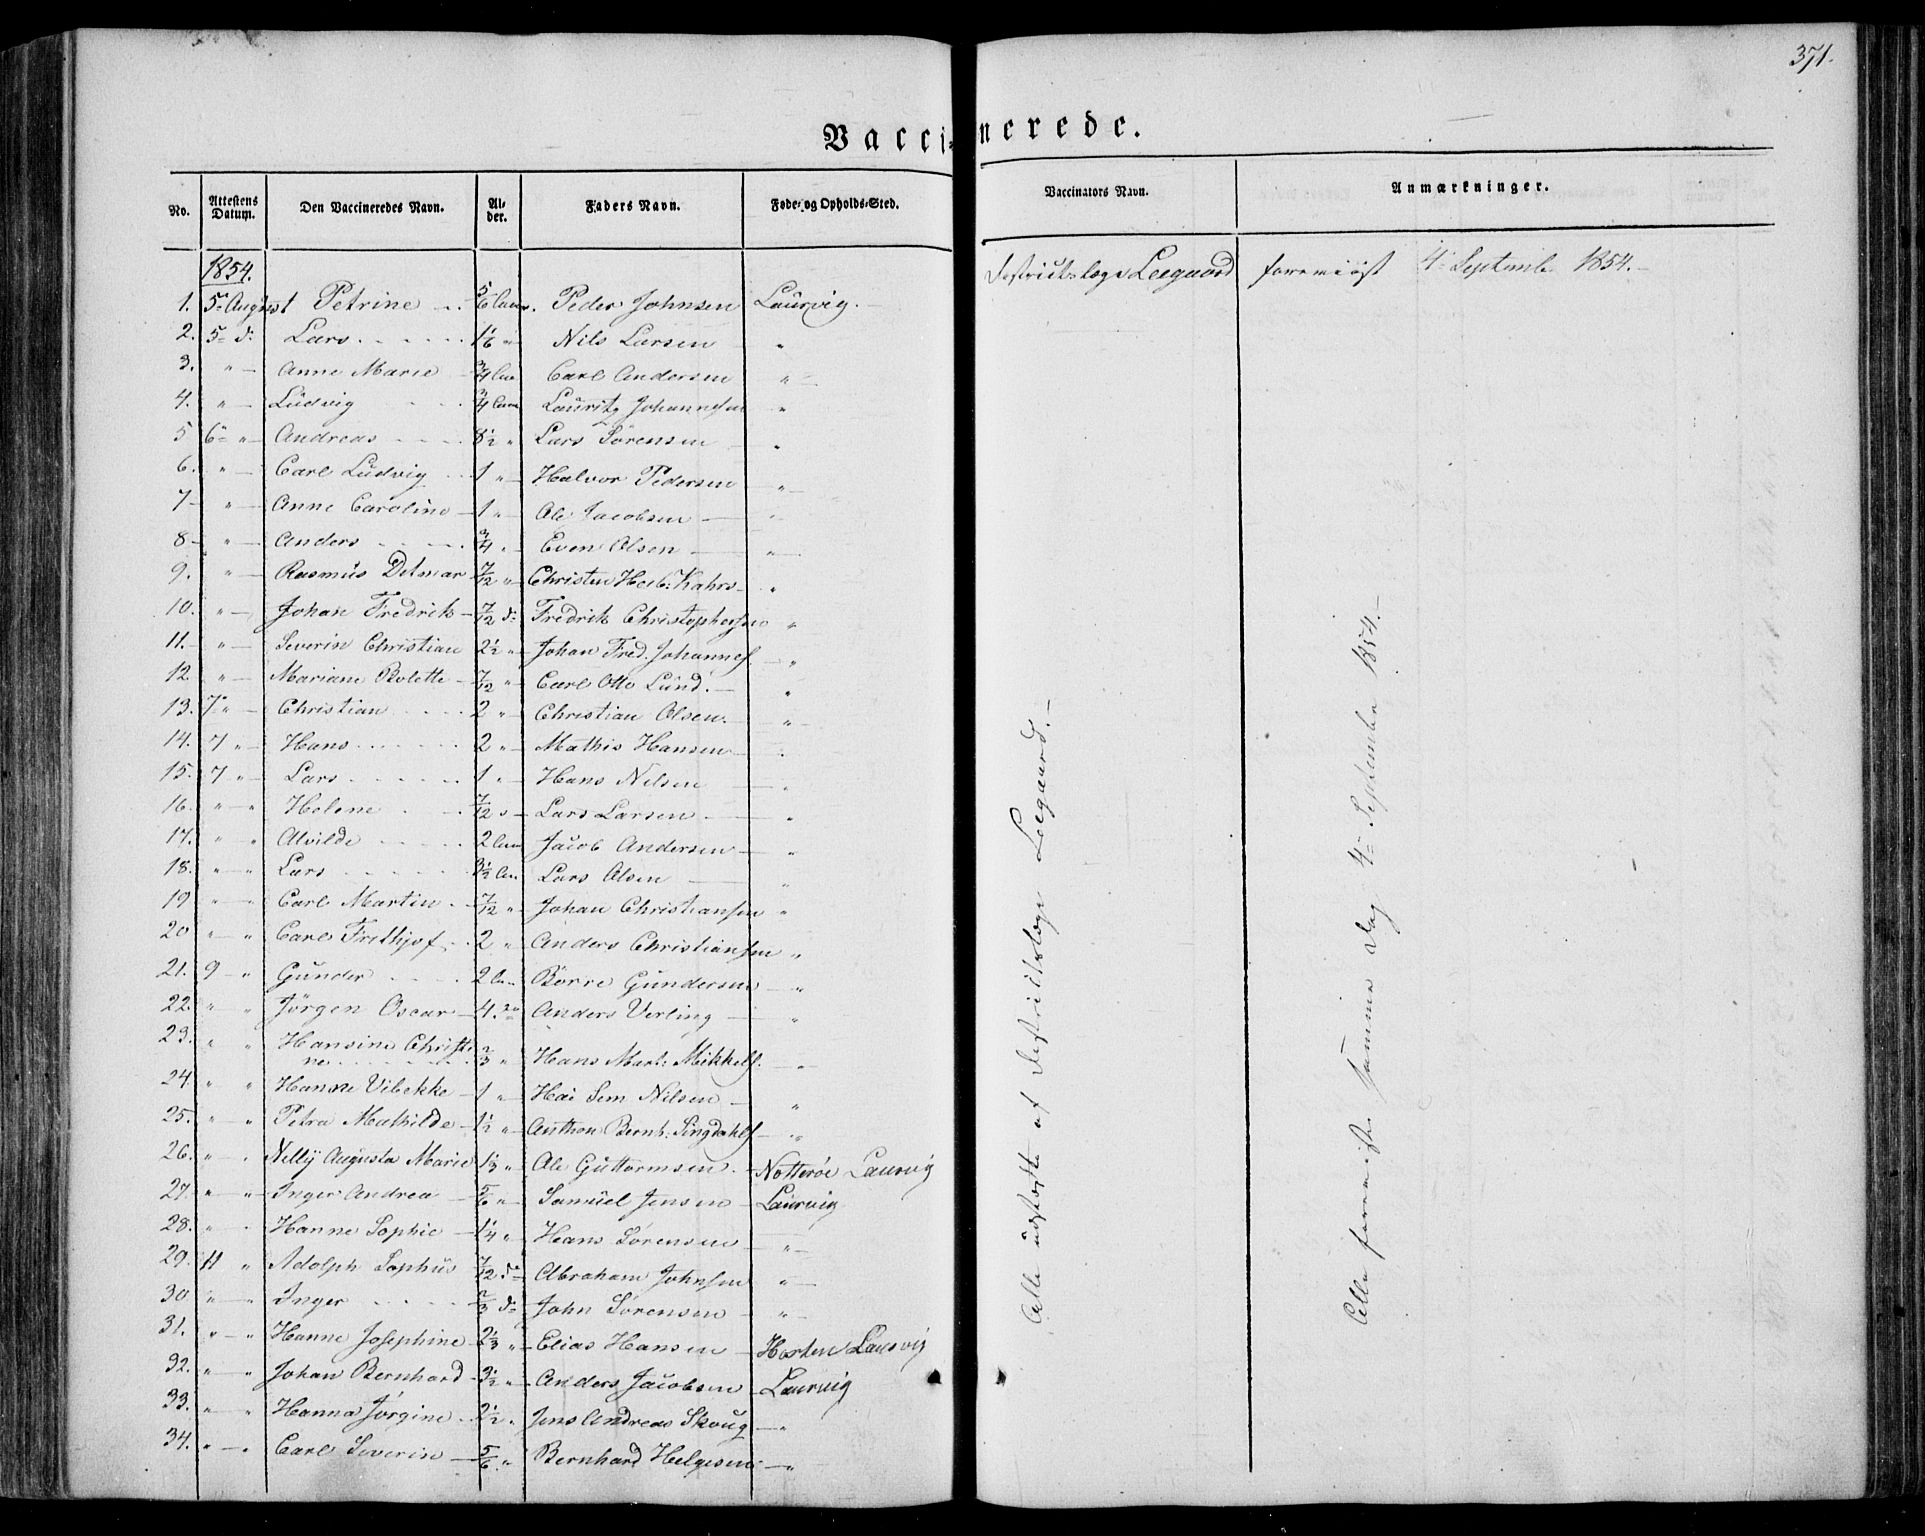 371.
Vaccinerede.
No. Attestens Datum. Den Vaccineredes Navn. Alder. Faders Navn. Føde- og Opholds-Sted. Vaccinators Navn. Anmærkninger.
1854.
1. 5te August Petrine 5/6 Peder Johnsen Laurvig. Districtslæge Leegaard foreviist 4de Septembr 1854.
2. 5te d: Lars 1 1/6 " Nils Larsen "
3. " Anne Marie 3/4 Carl Andersen "
4. " Ludvig 3/4 Lauritz Johannesen "
5 6te " Andreas 8 1/2 " Lars Sørensen "
6. " Carl Ludvig 1 " Halvor Pedersen "
7 " Anne Caroline 1 " Ole Jacobsen "
8 " Anders 3/4 " Even Olsen "
9. " Rasmus Ditmar 7/12 " Christen Kahrs "
10. " Johan Fredrik 7/12 d: Fredrik Christophersen "
11. " Severin Christian 2 1/2 " Johan Fred. Johannes. "
12 " Mariane Bolette 7/12 " Carl Otto Lund. "
13. 7de " Christian 2 " Christian Olsen. "
14. 7 " Hans 2 " Mathis Hansen "
15. 7 " Lars 1 " Hans Nilsen "
16. " " Helene 7/12 " Lars Larsen "
17. " " Alvilde 2 Jacob Andersen "
18. " " Lars 3 1/2 Lars Olsen "
19 " " Carl Martin 7/12 " Johan Christiansen "
20 " " Carl Frithjof 2 " Anders Christiansen "
21. 9 " Gunder 2 Børre Gundersen "
22. " " Jörgen Oscar 4. do Anders Verling "
23. " " Hansine Christi-
ne 2/3 " Hans Mart: Mikkels. "
24. " " Hanne Vibekke 1 " Hai Sem Nilsen "
25. " " Petra Mathilde 1 1/2 " Anthon Bernh: Singdahls "
26. " " Nelly Augusta Marie 1 1/3 " Ole Guttormsen. Nøtterøe Laurvig
27. " " Inger Andrea 5/6 " Samuel Jensen Laurvig
28. " " Hanne Sophie 1 1/4 " Hans Sørensen "
29. 11 " Adolph Sophus 7/12 do Abraham Johnsen "
30 " " Inger 2/3 do John Sørensen "
31. " " Hanne Josephine 2 1/3 " Elias Hansen Horten Laurvig
32. " " Johan Bernhard 3 1/2 " Anders Jacobsen Laurvig
33. " " Hanna Jørgine 2 1/2 " Jens Andreas Skoug "
34. " " Carl Severin 5/6 " Bernhard Helgesen "
Alle udstædte af Districtslæge Leegaard.
Alle foreviiste samme Dag 4de Septembr 1854.